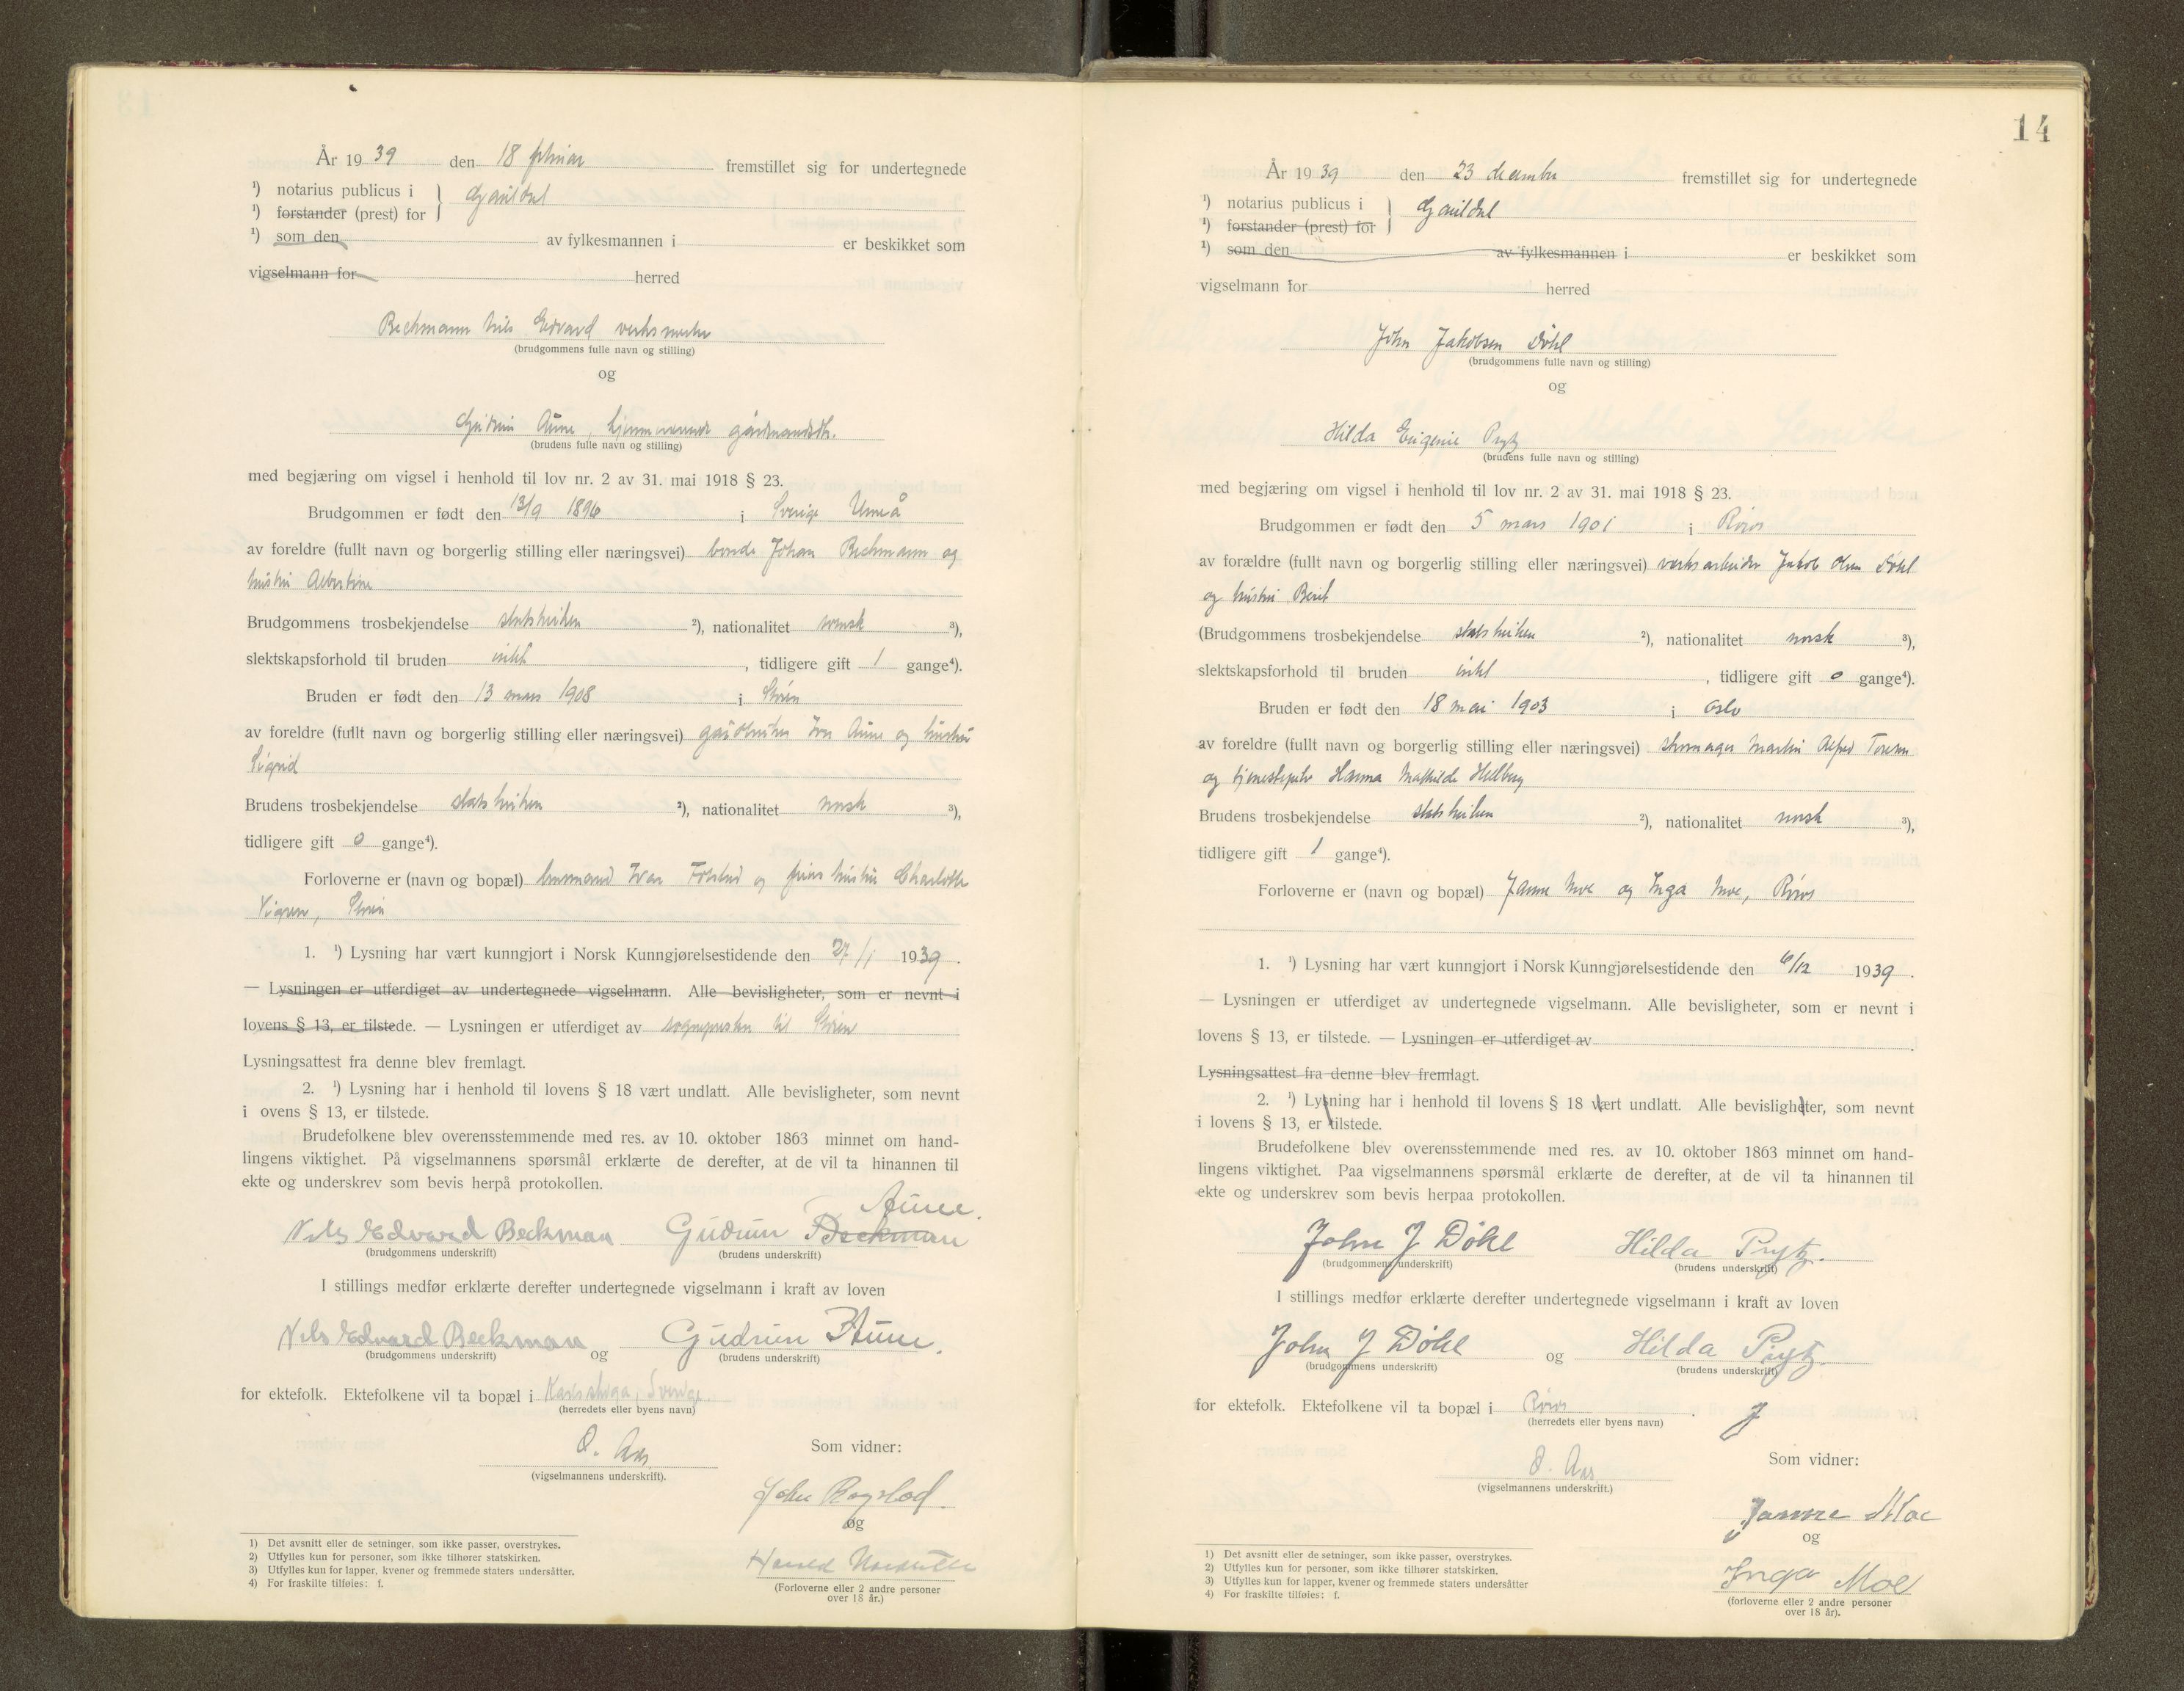 År 1939 den 18 februar fremstillet sig for undertegnede
¹) notarius publicus i } Gauldal
¹) forstander (prest) for
¹) som den av fylkesmannen i er beskikket som
vigselmann for herred
Beckmann Nils Edvard verksmester
(brudgommens fulle navn og stilling)
og
Gudrun Aune, hjemmeværende gårdmandsdtr.
(brudens fulle navn og stilling)
med begjæring om vigsel i henhold til lov nr. 2 av 31. mai 1918 § 23.
Brudgommen er født den 13/9 1896 i Sverige Umeå
av foreldre (fullt navn og borgerlig stilling eller næringsvei) bonde Johan Beckmann og
hustru Albertine
Brudgommens trosbekjendelse statskirken ²), nationalitet svensk ³),
slektskapsforhold til bruden intet, tidligere gift 1 gange⁴).
Bruden er født den 13 mars 1908 i Støren
av foreldre (fullt navn og borgerlig stilling eller næringsvei) gårdbruker Aune og hustru
Sigrid
Brudens trosbekjendelse statskirken ²), nationalitet norsk ³),
tidligere gift 0 gange⁴).
Forloverne er (navn og bopæl) Ivar og hustru Charlotte
Støren
1. ¹) Lysning har vært kunngjort i Norsk Kunngjørelsestidende den 27/1 1939.
— Lysningen er utferdiget av undertegnede vigselmann. Alle bevisligheter, som er nevnt i
lovens § 13, er tilstede. — Lysningen er utferdiget av sognepresten til Støren
Lysningsattest fra denne blev fremlagt.
2. ¹) Lysning har i henhold til lovens § 18 vært undlatt. Alle bevisligheter, som nevnt
i ovens § 13, er tilstede.
Brudefolkene blev overensstemmende med res. av 10. oktober 1863 minnet om hand-
lingens viktighet. På vigselmannens spørsmål erklærte de derefter, at de vil ta hinannen til
ekte og underskrev som bevis herpå protokollen.
Aune.
Nils Edvard Beckman Gudrun Beckman
(brudgommens underskrift) (brudens underskrift)
I stillings medfør erklærte derefter undertegnede vigselmann i kraft av loven
Nils Edvard Beckman og Gudrun Aune.
(brudgommens underskrift) (brudens underskrift)
for ektefolk. Ektefolkene vil ta bopæl i Karlskoga, Sverige
(herredets eller byens navn)
O. Aas
(vigselmannens underskrift).
Som vidner:
John Rogstad.
og
Harald
(Forloverne eller 2 andre personer
over 18 år.)
1) Det avsnitt eller de setninger, som ikke passer, overstrykes.
2) Utfylles kun for personer, som ikke tilhører statskirken.
3) Utfylles kun for lapper, kvener og fremmede staters undersåtter.
4) For fraskilte tilføies: f.
14
År 1939 den 23 desember fremstillet sig for undertegnede
¹) notarius publicus i } Gauldal
¹) forstander (prest) for
¹) som den av fylkesmannen i er beskikket som
vigselmann for herred
John Jakobsen Døhl
(brudgommens fulle navn og stilling)
og
Hilda Eugenie Prytz
(brudens fulle navn og stilling)
med begjæring om vigsel i henhold til lov nr. 2 av 31. mai 1918 § 23.
Brudgommen er født den 5 mars 1901 i Røros
av forældre (fullt navn og borgerlig stilling eller næringsvei) verksarbeider Jakob Olsen Døhl
og hustru Berit
(Brudgommens trosbekjendelse statskirken ²), nationalitet norsk ³),
slektskapsforhold til bruden intet, tidligere gift 0 gange⁴).
Bruden er født den 18 mai 1903 i Oslo
av foreldre (fullt navn og borgerlig stilling eller næringsvei) skomager Martin Alfred Toresen
og tjenestepike Hanna Mathilde Hellberg
Brudens trosbekjendelse statskirken ²), nationalitet norsk ³),
tidligere gift 1 gange⁴).
Forloverne er (navn og bopæl) Janne Moe og Inga Moe, Røros
1. ¹) Lysning har vært kunngjort i Norsk Kunngjørelsestidende den 6/12 1939.
— Lysningen er utferdiget av undertegnede vigselmann. Alle bevisligheter, som er nevnt i
lovens § 13, er tilstede. — Lysningen er utferdiget av
Lysningsattest fra denne blev fremlagt.
2. ¹) Lysning har i henhold til lovens § 18 vært undlatt. Alle bevisligheter, som nevnt
i lovens § 13, er tilstede.
Brudefolkene blev overensstemmende med res. av 10. oktober 1863 minnet om hand-
lingens viktighet. Paa vigselmannens spørsmål erklærte de derefter, at de vil ta hinannen til
ekte og underskrev som bevis herpaa protokollen.
John J Døhl Hilda Prytz.
(brudgommens underskrift) (brudens underskrift)
I stillings medfør erklærte derefter undertegnede vigselmann i kraft av loven
John J Døhl og Hilda Prytz.
(brudgommens underskrift) (brudens underskrift)
for ektefolk. Ektefolkene vil ta bopæl i Røros.
(herredets eller byens navn)
O. Aas
(vigselmannens underskrift.)
Som vidner:
Janne Moe
og
Inga Moe
(forloverne eller 2 andre personer
over 18 år).
1) Det avsnitt eller de setninger, som ikke passer, overstrykes.
2) Utfylles kun for personer, som ikke tilhører statskirken.
3) Utfylles kun for lapper, kvener og fremmede staters undersåtter
4) For fraskilte tilføies: f.